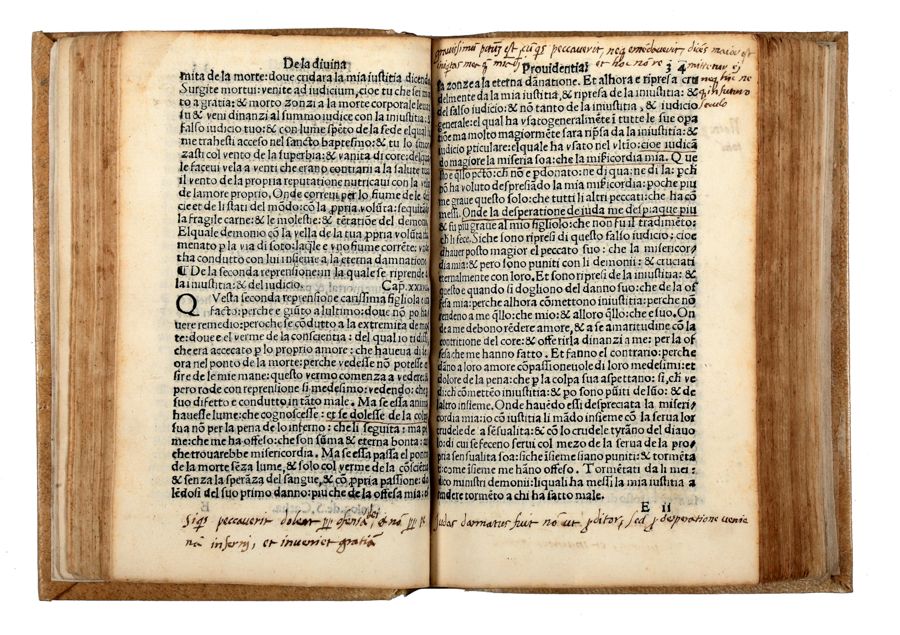 De la diuina
mita de la morte: doue cridara la mia iustitia dicendo
Surgite mortui: venite ad iudicium, cioe tu che sei mor
to a gratia: & morto zonzi a la morte corporale leua
su & veni dinanzi al summo iudice con la iniustitia: &
falso iudicio tuo: & con lume spēto de la fede el qual
me trahesti acceso nel sancto baptesmo: & tu lo smor
zasti col vento de la superbia: & vanita di core: del qua
le faceui vela a venti che erano contrarii a la salute tua
il vento de la propria reputatione nutricaui con la vela
de lamore proprio, Onde correui per lo fiume de le deli
cie et de li stati del mōdo: cō la ppria volūta: sequitādo
la fragile carne: & le molestie: & tētatiōe del demonio
El quale demonio cō la vella de la tua ppria volūta tha
menato p la via di soto: laq̄le e vno fiume corrēte: vn
tha conducto con lui insieme a la eterna damnatione
¶ De la seconda reprensione: in la quale se riprende
la iniustitia: & del iudicio. Cap. xxxvi
QVesta seconda reprensione carissima figliola e in
facto: perche e giūto a lultimo: doue nō po ha
uere remedio: peroche se cōdutto a la extremita de mor
te: doue e el verme de la conscientia: del qual io ti dissi
che era accecato p lo proprio amore: che haueua di se
ora nel ponto de la morte: perche vedesse nō potesse
sire de le mie mane: questo vermo comenza a vedere: &
pero rode con reprensione si medesimo: vedendo: che
suo diffeto e conduto in tāto male. Ma se essa anima
hauesse lume: che cognoscesse: et se dolesse de la colpa
sua nō per la pena de lo inferno: che li seguita: ma p
me: che ma offeso: che son sūma & eterna bonta: an
che trouarebbe misericordia. Ma se essa passa el ponto
de la morte sēza lume, & solo col verme de la cōsciētia
& senza la sperāza del sangue, & cō, ppria passione: do
lēdosi del suo primo danno: piu che de la offesa mia: e
Siq̄s peccauerit doleat offensa dei, et nō
nā inferni, et inueniet gratiā
mitetur ei
neq; hic ne
q; in futuro
seculo
Prouidentia 34
sa zonze a la eterna dānatione. Et alhora e ripresa cru
delmente da la mia iustitia, & ripresa de la iniustitia: &
del falso iudicio: & nō tanto de la iniustitia, & iudicio
generale: el qual ha vsato generalmēte i tutte le sue opa
tiōe ma molto magiormēte sara ripsa da la iniustitia: &
iudicio pticulare: el quale ha vsato nel vltio: cioe iudicā
do magiore la miseria soa: che la misericordia mia. Que
sto e q̄llo pctō: ch nō e pdonato: ne di qua: ne di la: pchi
nō ha voluto despresiādo la mia misericordia: poche piu
me graue questo solo: che tutti li altri peccati: che ha cō
messi. Onde la desperatione de iuda me despiaque piu
& fu piu graue al mio figliolo: che non fu il tradimēto:
ch li fece. Siche sono ripresi di questo falso iudicio: cioe
dhauer posto magior el peccato suo: che la misericor
dia mia: & pero sono puniti con li demonii: & cruciati
eternalmente con loro. Et sono ripresi de la iniustitia: &
questo e quando si dogliono del danno suo: che de la of
fesa mia: perche alhora cōmettono iniustitia: perche nō
rendeno a me q̄llo: che mio: & alloro q̄llo: che e suo. On
de a me debono rēdere amore, & a se amaritudine cō la
contritione del core: & offerirla dinanzi a me: per la of
fesa che me hanno fatto. Et fanno el contrario: perche
dāno a loro amore cōpassioneuole di loro medesimi: et
dolore de la pena: che p la colpa sua aspettano: si, ch ve
di: ch cōmettēo iniustitia: & po sono puniti de luo: & de
laltro insieme. Onde hauēdo essi despreciata la miseri-
cordia mia: io cō iustitia li mādo insieme cō la serua lor
crudele de a sēsualita: & cō lo crudele tyrāno del diauo
lo: di cui se feceno serui col mezo de la serua de la pro-
pria sensualita soa: siche īsieme siano puniti: & tormēta
ti: come īsieme me hāno offeso. Tormētati da li mei
tico ministri demonii: li quali ha messi la mia iustitia a
rendere tormēto a chi ha fatto male.
E ii
Iudas damnatus fuit nō ut pditor, sed p desperatione venie